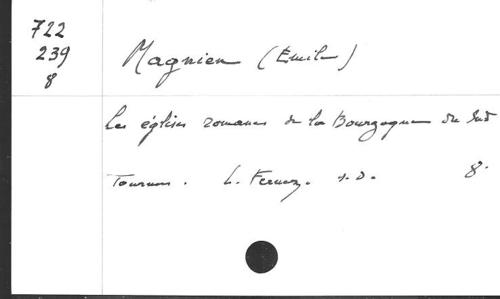 722
239
8
Magnien (Emile)
Les églises romanes de la Bourgogne du Sud
Tournus. L. Ferrez. s.d. 8.